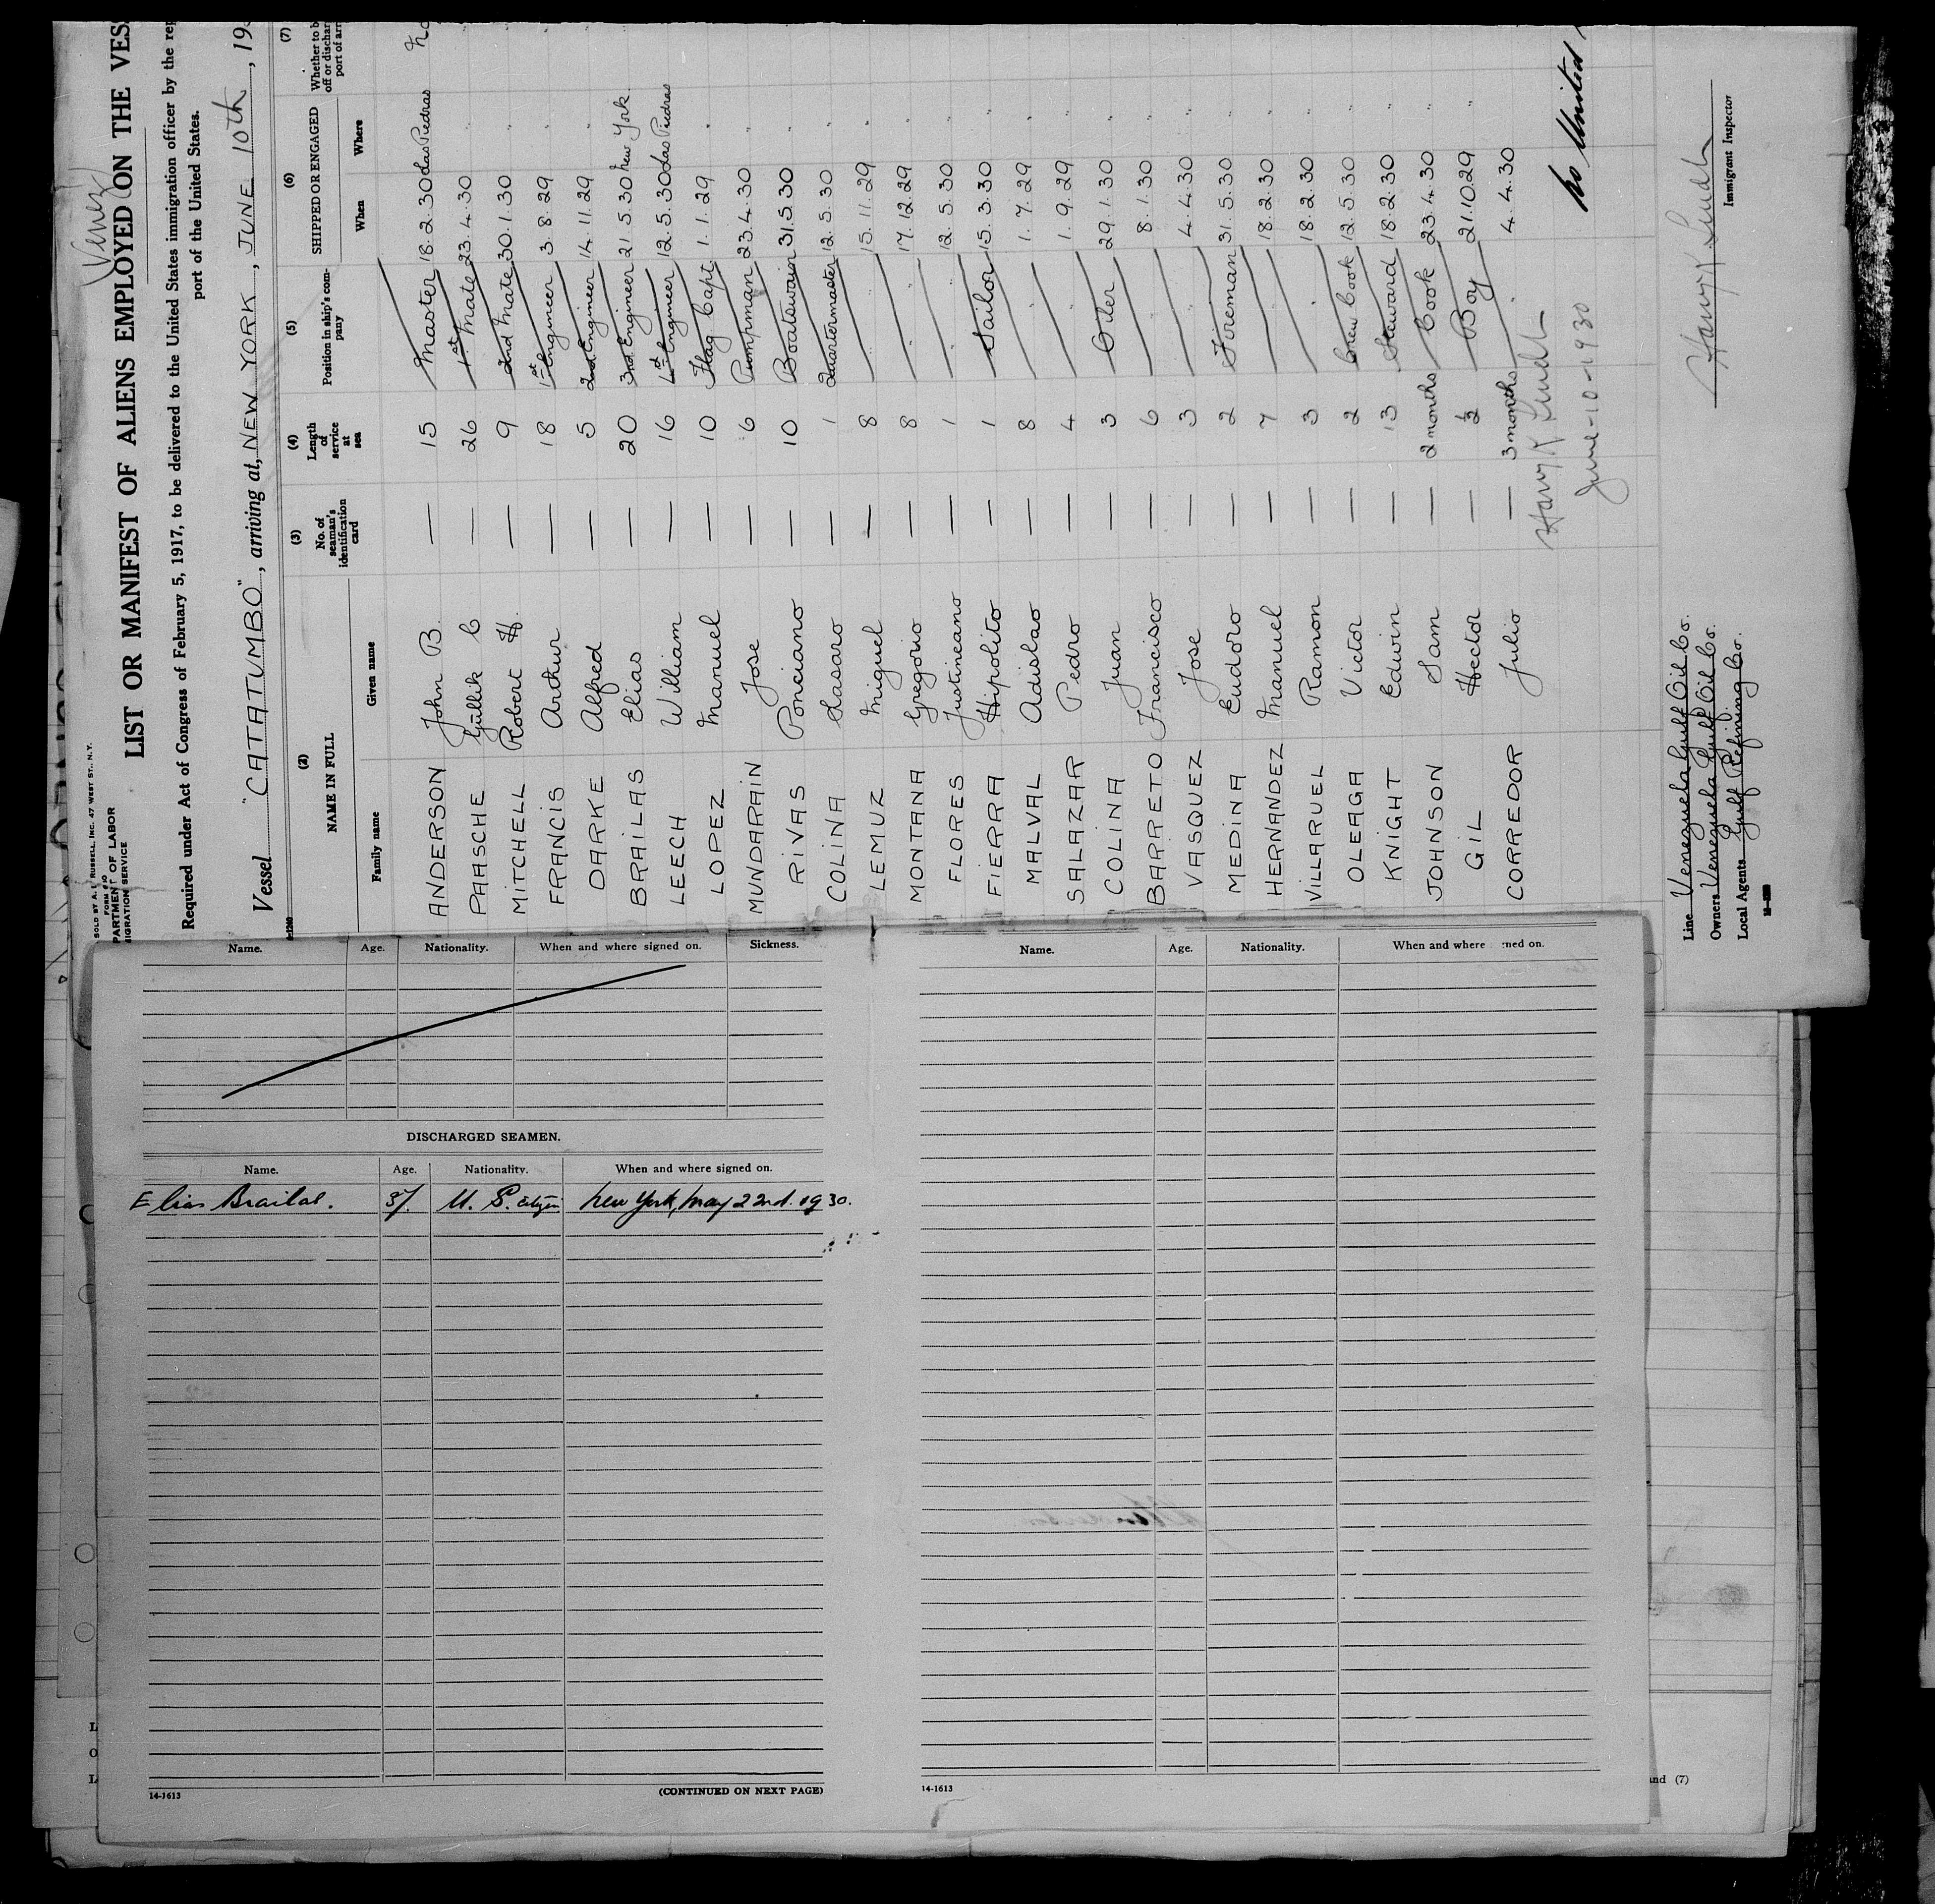 Venez
SOLD BY A. L. RUSSELL, INC. 47 WEST ST., N.Y.
PARTMENT OF LABOR
MIGRATION SERVICE
LIST OR MANIFEST OF ALIENS EMPLOYED ON THE VES
Required under Act of Congress of February 5, 1917, to be delivered to the United States immigration officer by the rep
port of the United States.
Vessel "CATATUMBO", arriving at, NEW YORK, JUNE 10th, 193
(2) (3) (4) (5) (6) (7)
NAME IN FULL No. of seaman's identification card Length of service at sea Position in ship's company SHIPPED OR ENGAGED Whether to b off or dischar port of arr
Family name Given name When Where
ANDERSON John B. — 15 Master 18.2.30 Las Piedras
PAASCHE Gullik C — 26 1st Mate 23.4.30 "
MITCHELL Robert H. — 9 2nd Mate 30.1.30 "
FRANCIS Arthur — 18 1st Engineer 3.8.29 "
DARKE Alfred — 5 2nd Engineer 14.11.29 "
BRAILAS Elias — 20 3rd Engineer 21.5.30 New York.
LEECH William — 16 4th Engineer 12.5.30 Las Piedras
LOPEZ Manuel — 10 Flag Capt 1.1.29 "
MUNDARAIN Jose — 6 Pumpman 23.4.30 "
RIVAS Ponciano — 10 Boatswain 31.5.30 "
COLINA Lasaro — 1 Quartermaster 12.5.30 "
LEMUZ Miguel — 8 " 15.11.29 "
MONTANA Gregorio — 8 " 17.12.29 "
FLORES Justineano — 1 " 12.5.30 "
FIERRA Hipolito — 1 Sailor 15.3.30 "
MALVAL Adislao — 8 " 1.7.29 "
SALAZAR Pedro — 4 " 1.9.29 "
COLINA Juan — 3 Oiler 29.1.30 "
BARRETO Francisco — 6 " 8.1.30 "
VASQUEZ Jose — 3 " 4.4.30 "
MEDINA Eudoro — 2 Fireman 31.5.30 "
HERNANDEZ Manuel — 7 " 18.2.30 "
VILLARUEL Ramon — 3 " 18.2.30 "
OLEAGA Victor — 2 Crew Cook 12.5.30 "
KNIGHT Edwin — 13 Steward 18.2.30 "
JOHNSON Sam — 2 months Cook 23.4.30 "
GIL Hector — ½ Boy 21.10.29 "
CORREDOR Julio — 3 months " 4.4.30
No United
June-10-1930
Line Venezuela Gulf Oil Co.
Owners Venezuela Gulf Oil Co.
Local Agents Gulf Refining Co.
Immigrant Inspector
Name. Age. Nationality. When and where signed on. Sickness.
DISCHARGED SEAMEN.
Name. Age. Nationality. When and where signed on.
Elias Brailas. 37. U. S. citizen New York, May 22nd. 1930.
14-1613 (CONTINUED ON NEXT PAGE)
Name. Age. Nationality. When and where ned on.
14-1613
and (7)